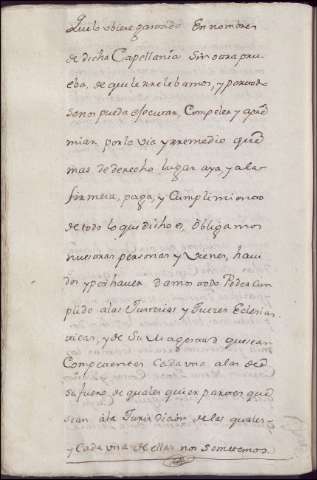 Que lo obiere ganado En nombre
de dicha Capellanía Sin otra prue
ba, de que le rrelebamos, y por todo
se nos pueda ejecutar, Compeler y apre
miar por la vía y rremedio que
mas de derecho lugar aya, y a la
firmeza, paga, y Cumplimiento
de todo lo que dicho es, Obligamos
nuestras personas y Vienes, havi
dos y por haver damos todo Poder Cum
plido a las Justicias y Juezes Eclesias
ticas, y de Su Magestad que sean
Competentes Cada uno a las de
su fuero, de quales quier partes que
sean a la Jurisdición de las quales
y Cada una de ellas nos Sometemos